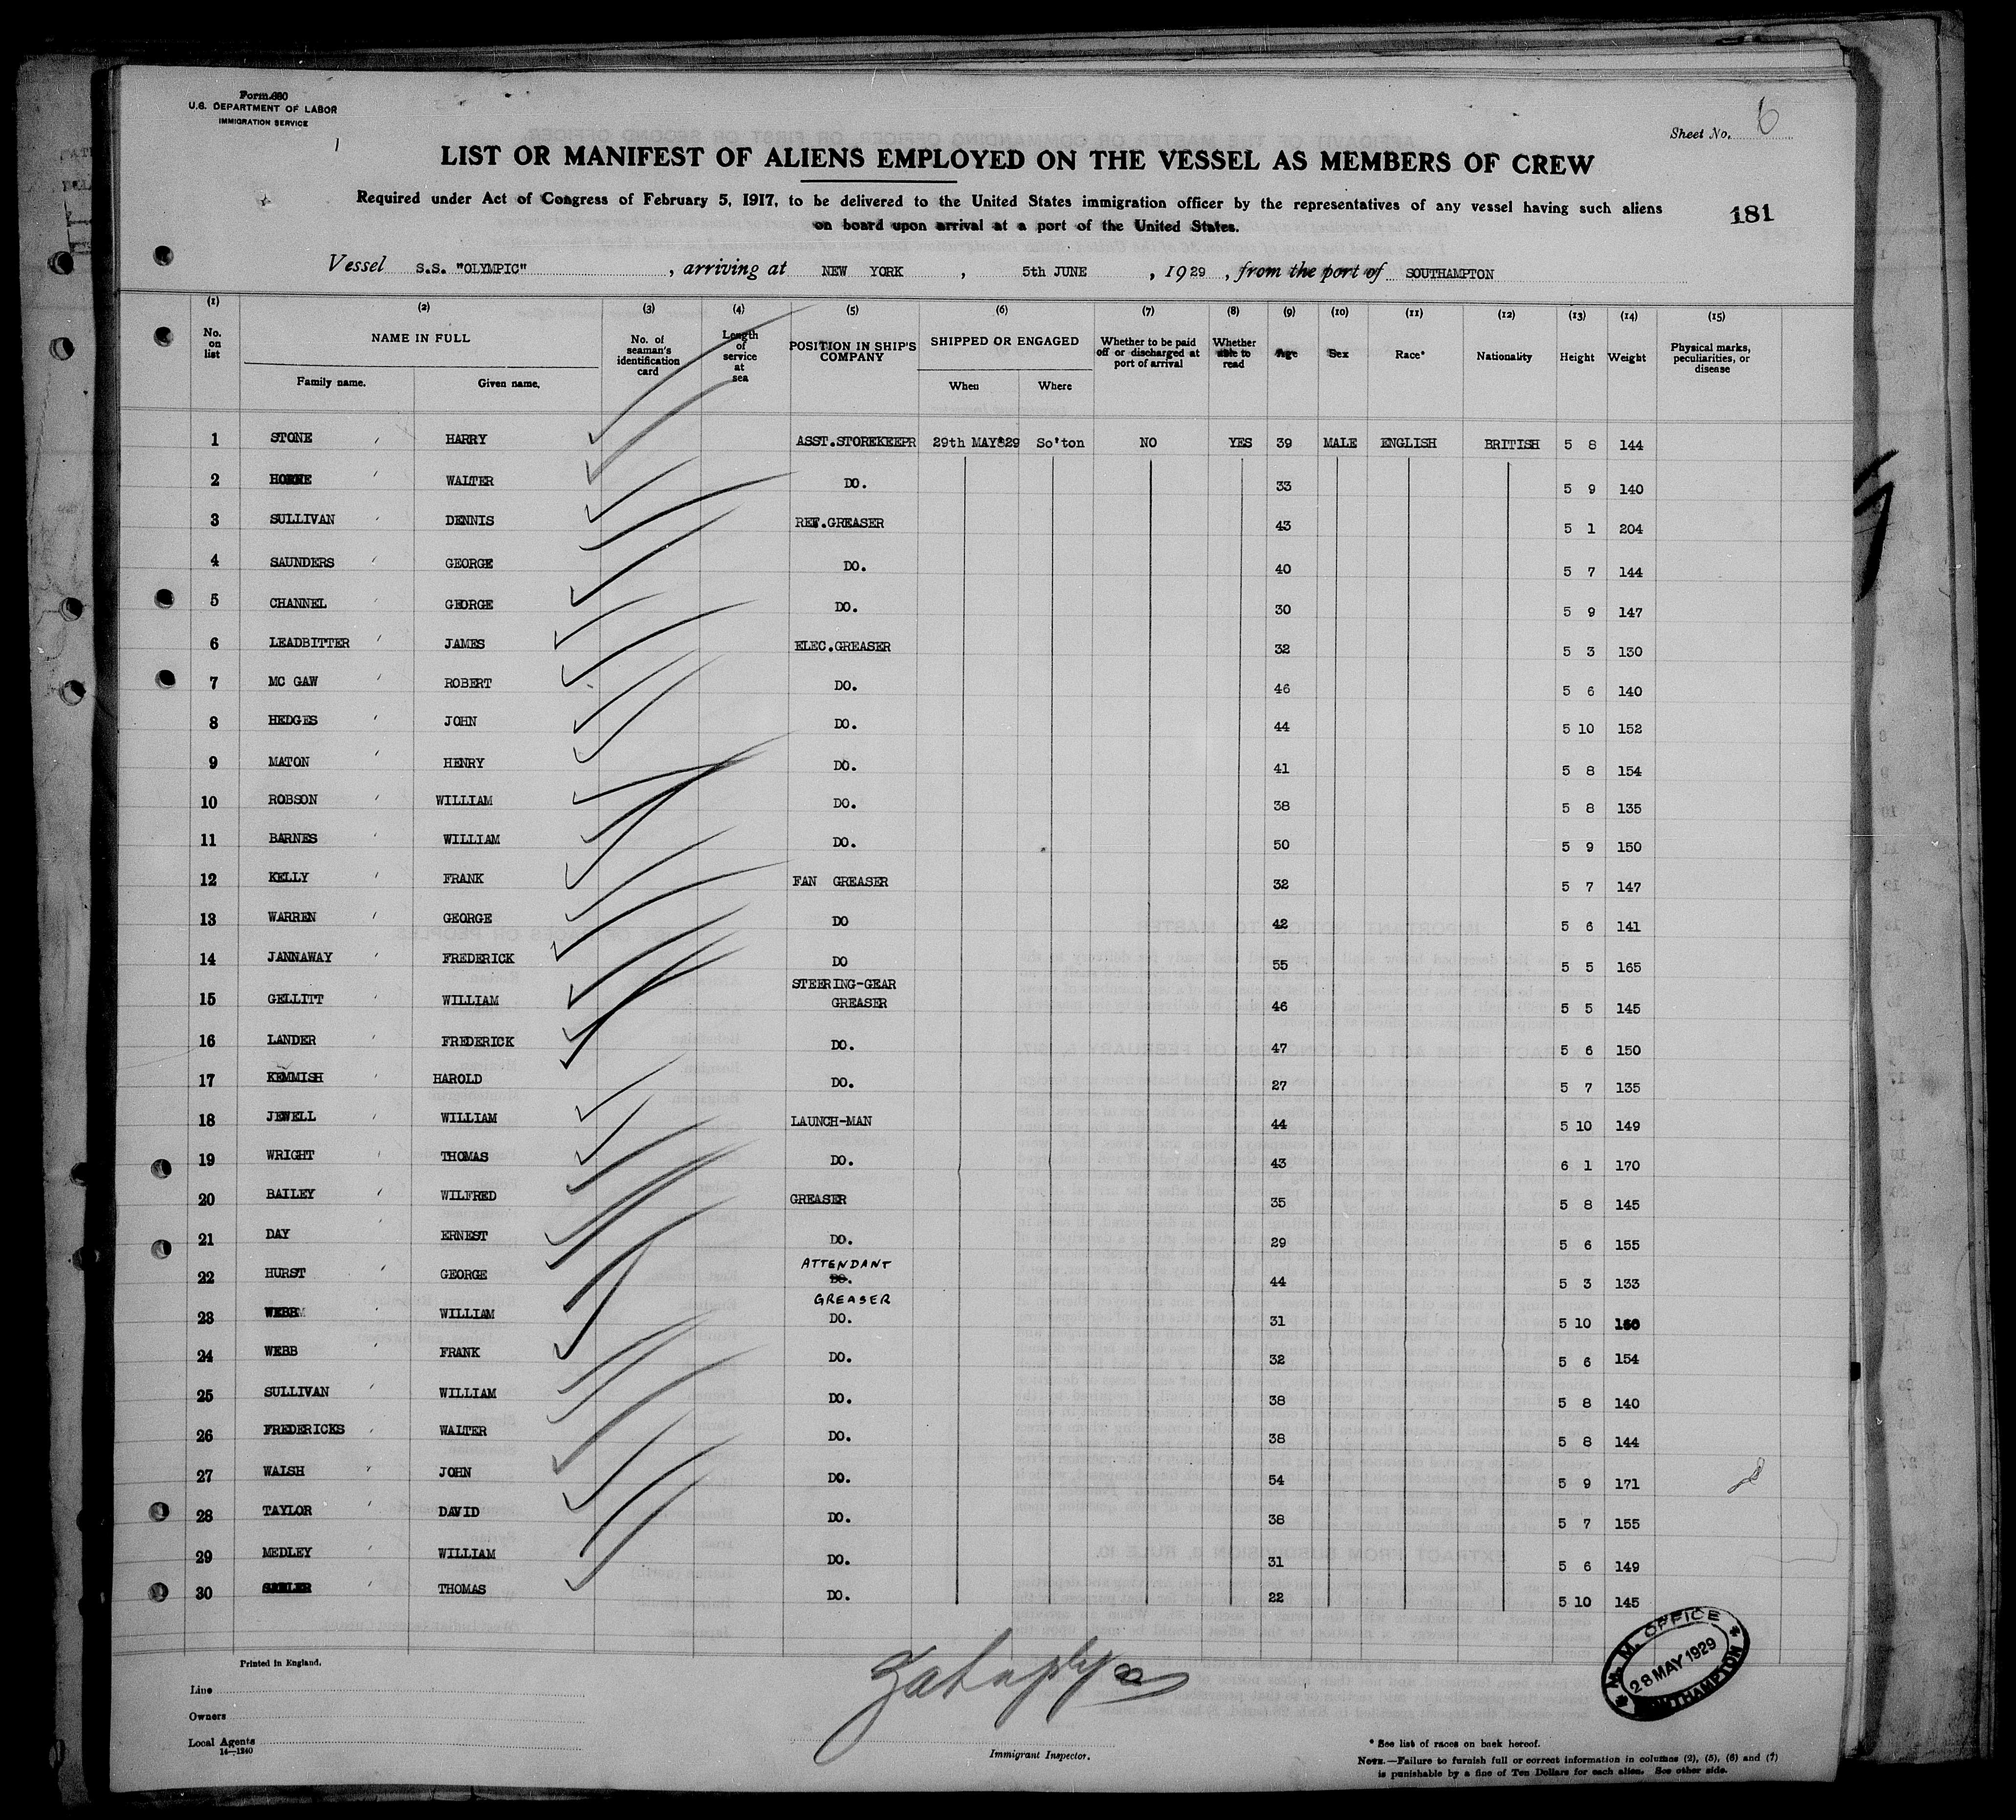 Form 680
U.S. DEPARTMENT OF LABOR
IMMIGRATION SERVICE
Sheet No. 6
LIST OR MANIFEST OF ALIENS EMPLOYED ON THE VESSEL AS MEMBERS OF CREW
Required under Act of Congress of February 5, 1917, to be delivered to the United States immigration officer by the representatives of any vessel having such aliens
on board upon arrival at a port of the United States.
181
Vessel S.S. "OLYMPIC", arriving at NEW YORK, 5th JUNE, 1929, from the port of SOUTHAMPTON
(1) (2) (3) (4) (5) (6) (7) (8) (9) (10) (11) (12) (13) (14) (15)
No. on list NAME IN FULL Family name. Given name. No. of seaman's identification card Length of service at sea POSITION IN SHIP'S COMPANY SHIPPED OR ENGAGED When Where Whether to be paid off or discharged at port of arrival Whether able to read Age Sex Race* Nationality Height Weight Physical marks, peculiarities, or disease
1 STONE HARRY ASST.STOREKEEPR 29th MAY'29 So'ton NO YES 39 MALE ENGLISH BRITISH 5 8 144
2 HORNE WALTER DO. 33 5 9 140
3 SULLIVAN DENNIS REF.GREASER 43 5 1 204
4 SAUNDERS GEORGE DO. 40 5 7 144
5 CHANNEL GEORGE DO. 30 5 9 147
6 LEADBITTER JAMES ELEC.GREASER 32 5 3 130
7 MC GAW ROBERT DO. 46 5 6 140
8 HEDGES JOHN DO. 44 5 10 152
9 MATON HENRY DO. 41 5 8 154
10 ROBSON WILLIAM DO. 38 5 8 135
11 BARNES WILLIAM DO. 50 5 9 150
12 KELLY FRANK FAN GREASER 32 5 7 147
13 WARREN GEORGE DO 42 5 6 141
14 JANNAWAY FREDERICK DO 55 5 5 165
15 GELLITT WILLIAM STEERING-GEAR GREASER 46 5 5 145
16 LANDER FREDERICK DO. 47 5 6 150
17 KEMMISH HAROLD DO. 27 5 7 135
18 JEWELL WILLIAM LAUNCH-MAN 44 5 10 149
19 WRIGHT THOMAS DO. 43 6 1 170
20 BAILEY WILFRED GREASER 35 5 8 145
21 DAY ERNEST DO. 29 5 6 155
22 HURST GEORGE ATTENDANT DO. 44 5 3 133
23 WEBB WILLIAM GREASER DO. 31 5 10 160
24 WEBB FRANK DO. 32 5 6 154
25 SULLIVAN WILLIAM DO. 38 5 8 140
26 FREDERICKS WALTER DO. 38 5 8 144
27 WALSH JOHN DO. 54 5 9 171
28 TAYLOR DAVID DO. 38 5 7 155
29 MEDLEY WILLIAM DO. 31 5 6 149
30 THOMAS DO. 22 5 10 145
Printed in England.
Line
Owners
Local Agents
14—1240
Immigrant Inspector.
M. M. OFFICE
28 MAY 1929
SOUTHAMPTON
* See list of races on back hereof.
NOTE.—Failure to furnish full or correct information in columns (2), (5), (6) and (7)
is punishable by a fine of Ten Dollars for each alien. See other side.